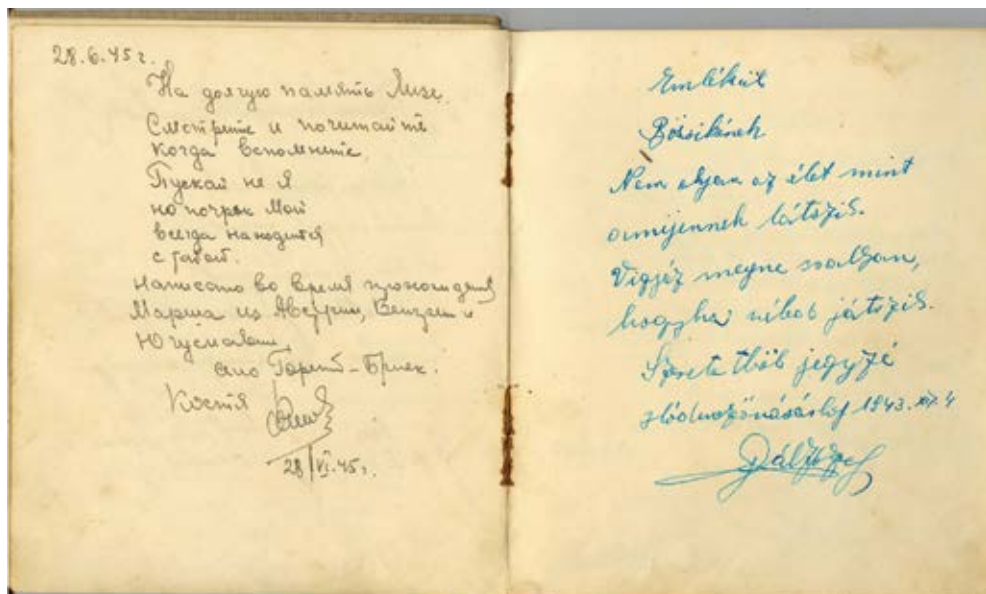 28.6.45 г.
На долгую память Лизе.
Смотрите и почитайте
когда вспомните.
Пускай не я
но почерк Мой
всегда находится
с тобой.
Написано во время прохождения
Марша из Австрии, Венгрии и
Югуславии,
Костя
28/VI.45 г.
Emlékül
Börsikének
Nem olyan az élet mint
amijennek látszik.
Vigyéz megne csaljan,
hogyha níked játszik.
Szeretetböl jegyzé
1943. XI. 4